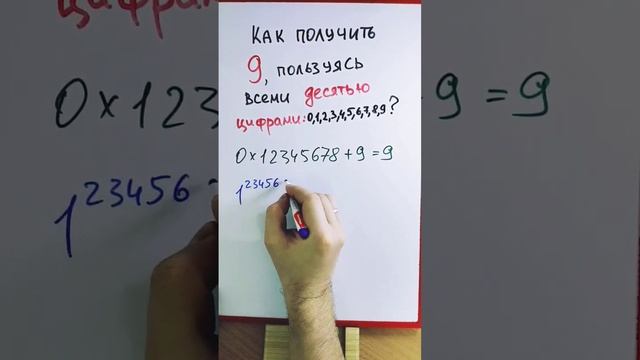 Как получить
9, пользуясь
всеми десятью
цифрами: 0,1,2,3,4,5,6,7,8,9?
0×12345678+9=9
1^23456
0×123
9=9
1^23456